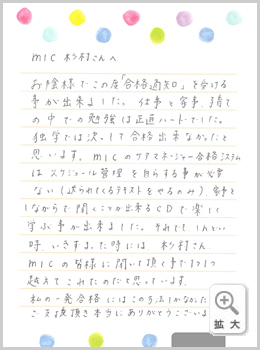 mic 杉村さんへ
お陰様でこの度「合格通知」を受ける
事が出来ました。仕事と家事、子育て
の中での勉強は正直ハードでした。
独学では決して合格出来なかったと
思います。micのケアマネージャー合格システム
はスケジュール管理を自らする事が必要
ない(送られてくるテキストをやるのみ)、家事と
しながらで聞くことが出来るCDで楽しく
学ぶ事が出来ました。それでもしんどい
時、いきづまった時には、杉村さん
micの皆様に聞いて頂く事で1つ1つ
越えてこれたのだと思っています。
私の一発合格にはこの方法しかなかった
ご支援頂き本当にありがとうござい
拡大